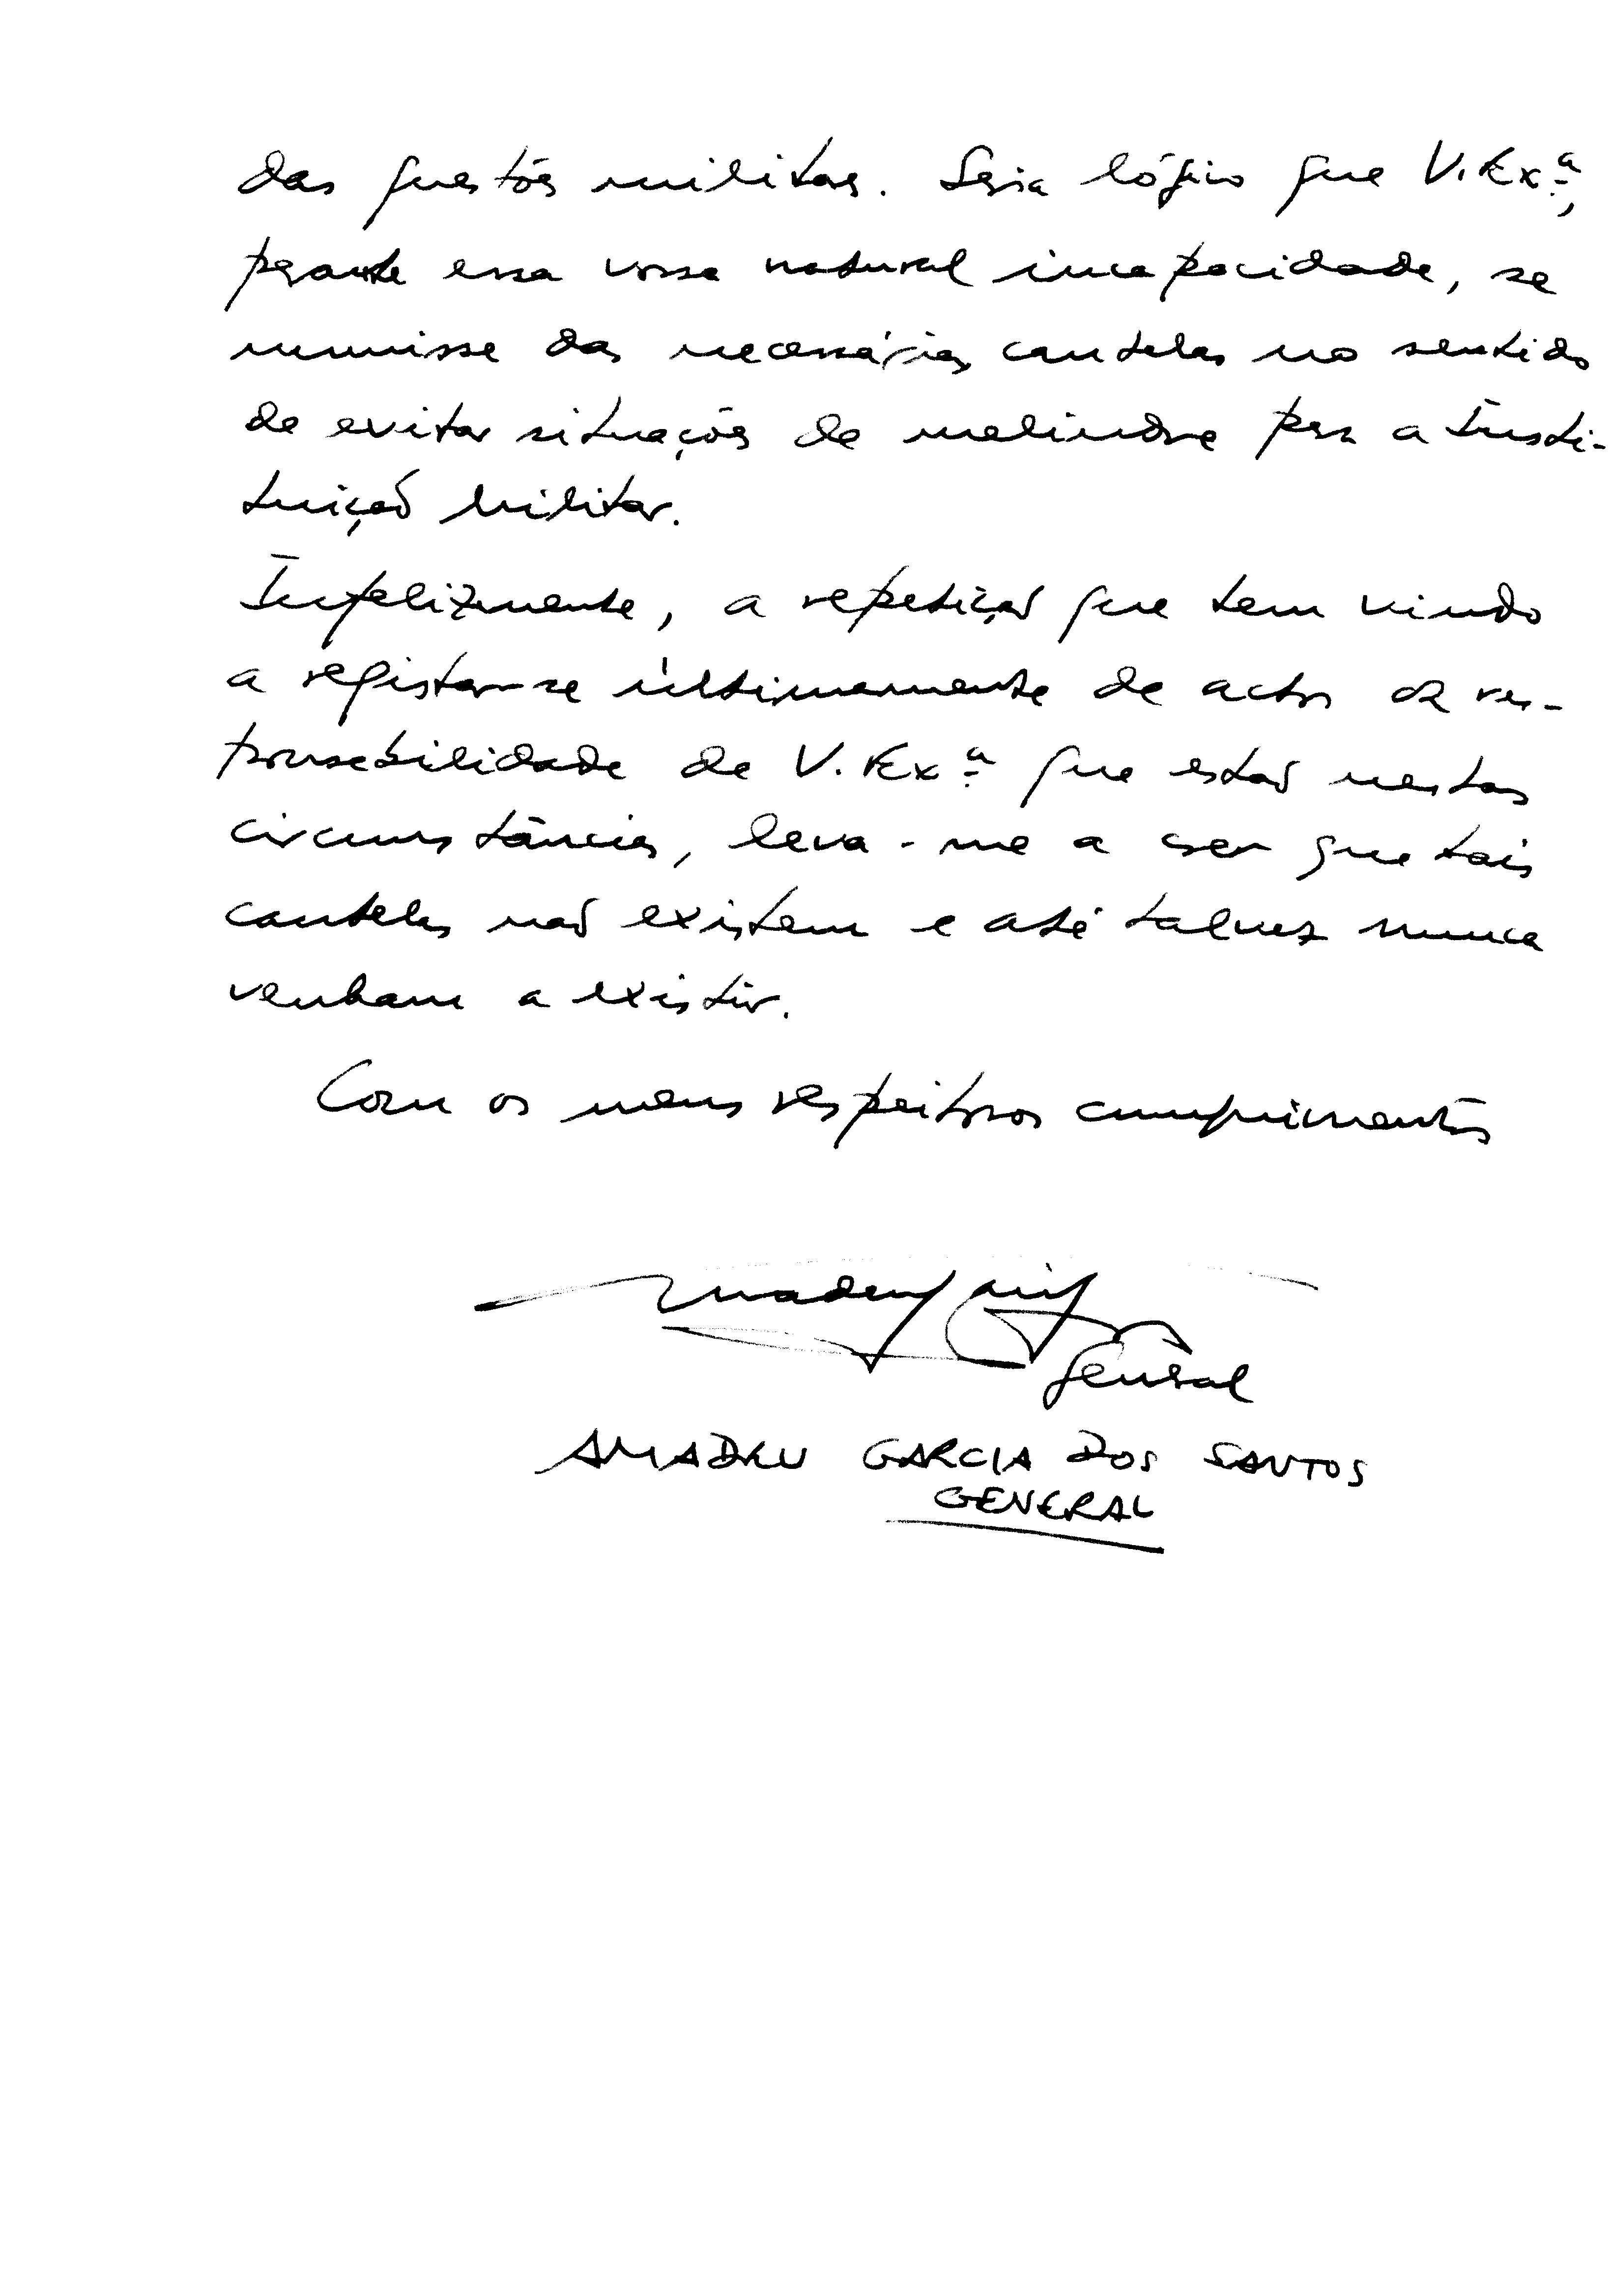 das questões militares. Seria lógico que V. Exª,
perante essa vossa natural incapacidade, se
munisse das necessárias cautelas no sentido
de evitar situações de melindre para a Insti-
tuição Militar.
Infelizmente, a repetição que tem vindo
a registar-se últimamente de actos da res-
ponsabilidade de V. Exª que estão nestas
circunstâncias, leva-me a crer que tais
cautelas não existem e até talvez nunca
venham a existir.
Com os meus respeitosos cumprimentos
General
AMADEU GARCIA DOS SANTOS
GENERAL